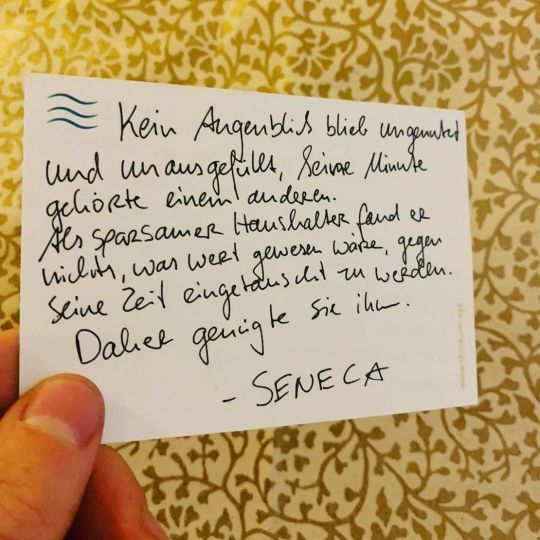 Kein Augenblick blieb ungenutzt
und unausgefüllt, keine Minute
gehörte einem anderen.
Als sparsamer Haushalter fand er
nichts, was wert gewesen wäre, gegen
seine Zeit eingetauscht zu werden.
Daher genügte sie ihm.
- SENECA